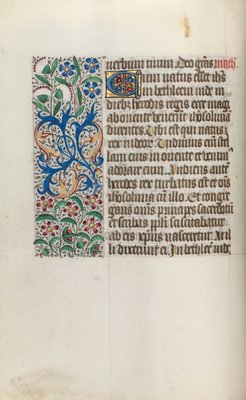 uerbum tuum Deo gr̃as math̃
Cum natus esset ihs̃
in bethleem iude in
diebz herodis regis ecce magi
ab oriente venerũt iherosolimã
dicentes Ubi est qui natus
rex iudeor Uidimus eni stel
lam eius in oriente et venim̃
adorare eum Audiens autẽ
herodes rex turbatus est et oĩs
iherosolima cũ illo Et congre
gans om̃s principes sacerdotũ
et scribas pp̃li sciscitabatur
ab eis xp̃us nasceretur At il
li dixerunt ei In bethleẽ iude